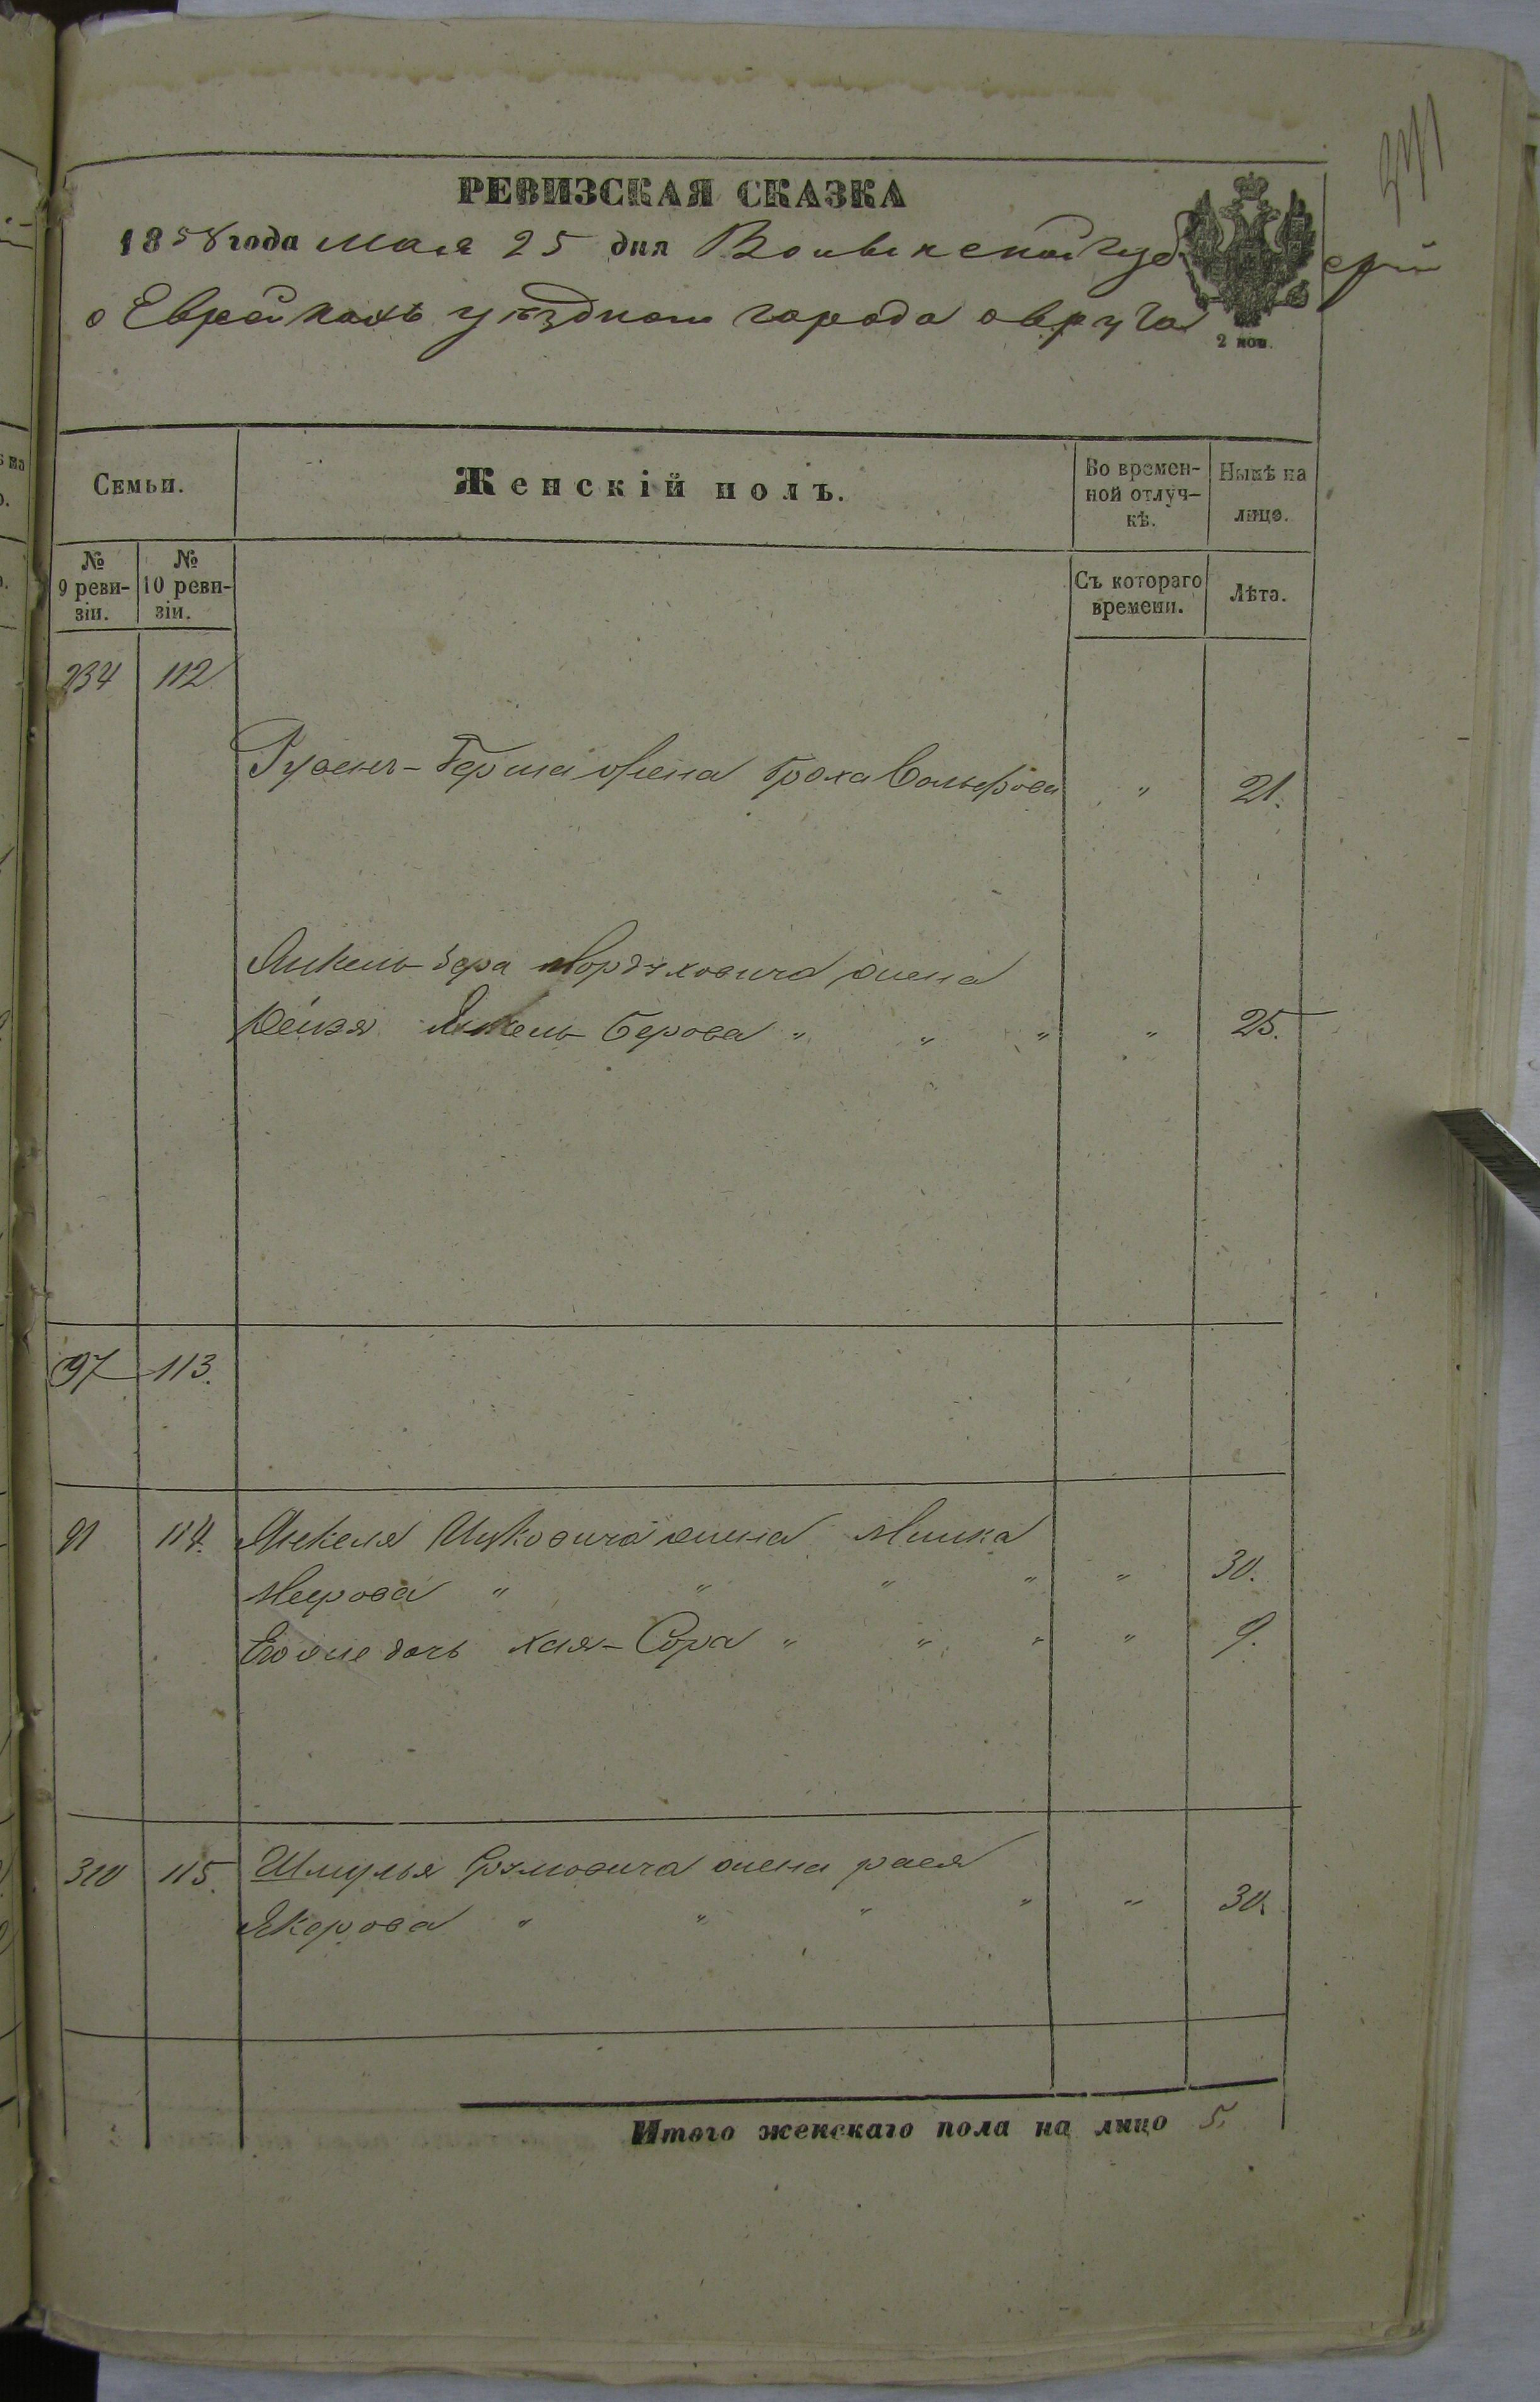 РЕВИЗСКАЯ СКАЗКА
1858 года Мая 25 дня Волынской губерній
о Еврейкахъ уѣзднаго города овруча
2 коп.
Семьи.
Женскій полъ.
Во времен-
ной отлуч-
кѣ.
Нынѣ на
лицо.
№
9 реви-
зіи.
№
10 реви-
зіи.
Съ котораго
времени.
Лѣта.
234 112
Рувенъ-Герша жена Броха Вольфова " 21.
Янкель-бера Мордуховича жена
Янкель-Берова " " " " 25.
97 113.
91 114. Янкеля Ицковича жена Минка
Меерова " " " " " 30.
Его же дочь Хая-Сора " " " " 9.
310 115. Шмулья жена рася
" " " " " 30.
Итого женскаго пола на лицо 5.